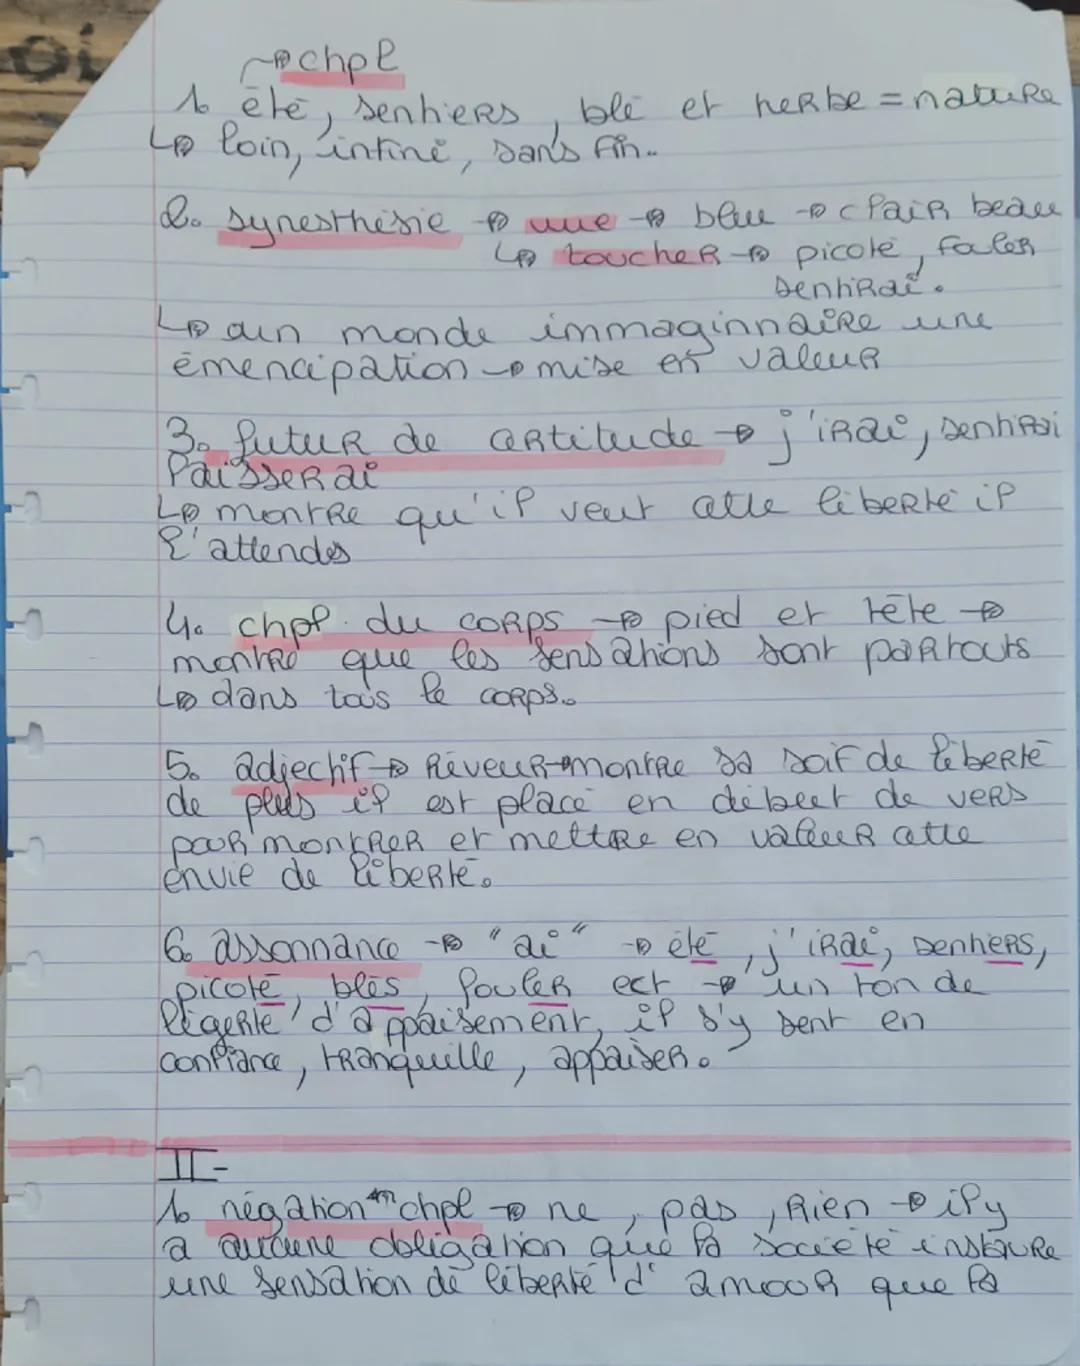 → chpl
1. été, sentiers, blé et herbe = nature
↳ loin, infini, sans fin..
2. synesthésie → vue → bleu → clair beau
↳ toucher → picoté, fouler
sentirai.
↳ un monde immaginnaire une
émencipation → mise en valeur
3. futur de certitude → j'irai, sentirai
laisserai
↳ montre qu'il veut cette liberté il
l'attendes
4. chpl. du corps → pied et tête →
montre que les sensations sont partouts
↳ dans tous le corps.
5. adjectif → Rêveur → montre sa soif de liberté
de plus il est placé en début de vers
pour montrer et mettre en valeur cette
envie de liberté.
6. assonnance → "ai" → été, j'irai, sentiers,
picoté, blés, fouler ect → un ton de
légerté d'appaisement, il s'y sent en
confiance, tranquille, appaiser.
II-
1. négation chpl → ne, pas, Rien → il y
a aucune obligation que la société instaure
une sensation de liberté d'amour que la